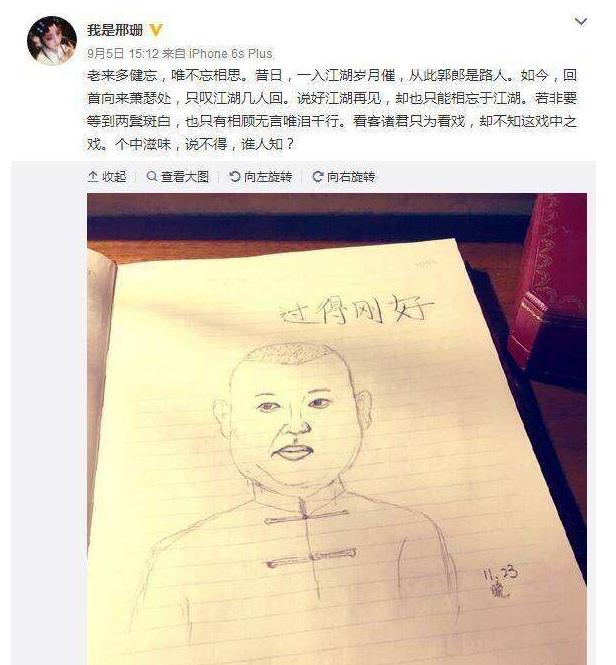 我是邢珊
9月5日 15:12 来自 iPhone 6s Plus
老来多健忘，唯不忘相思。昔日，一入江湖岁月催，从此郭郎是路人。如今，回
首向来萧瑟处，只叹江湖几人回。说好江湖再见，却也只能相忘于江湖。若非要
等到两鬓斑白，也只有相顾无言唯泪千行。看客诸君只为看戏，却不知这戏中之
戏。个中滋味，说不得，谁人知？
收起 查看大图 向左旋转 向右旋转
过得刚好
11.23
晓